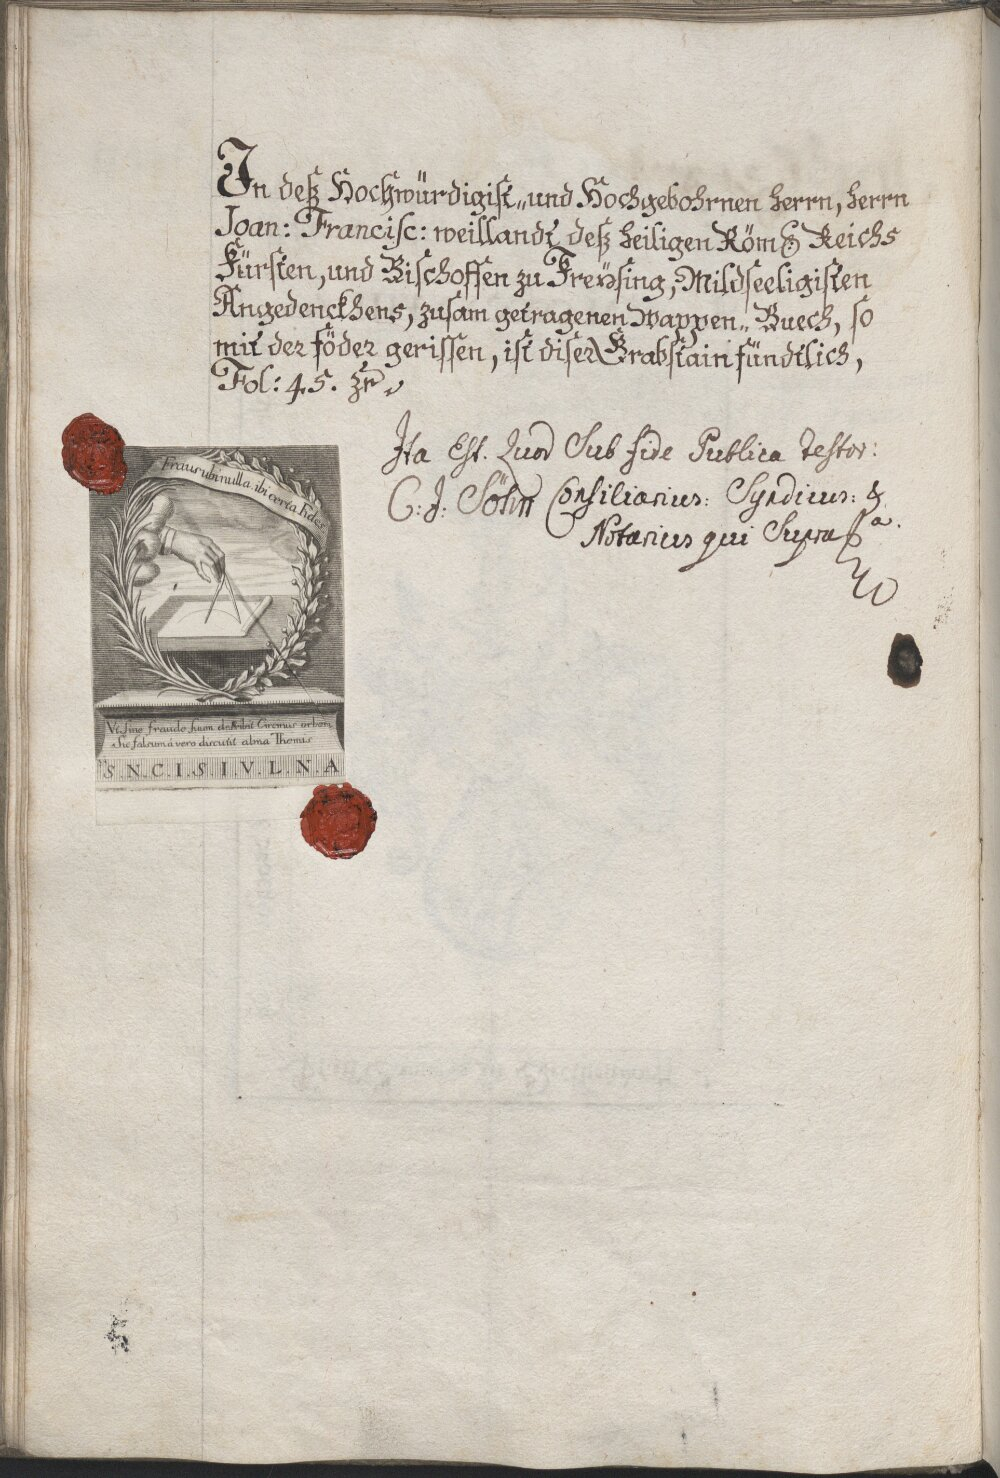 In deß Hochwürdigist„ und Hochgebohrnen herrn, herrn
Joan: Francisc: weillandt deß heiligen Röm: Reichs
Fürsten, und Bischoffen zu Freÿsing, Mildseeligisten
Angedenckhens, zusam getragenen Wappen„ Buech, so
mit der föder gerissen, ist diser Grabstain fündtlich,
Fol: 45.
Ita Est. Quod Sub fide Publica Testor:
C: J: Söhn Consiliarius: Syndicus: &
Notarius qui Supra
Fraus ubi nulla ibi certa fides
Vt sine fraude suum describit Circinus orbem
Sic falsum à vero discutit alma Themis
S.N.C.I.S.I.V.L.N.A